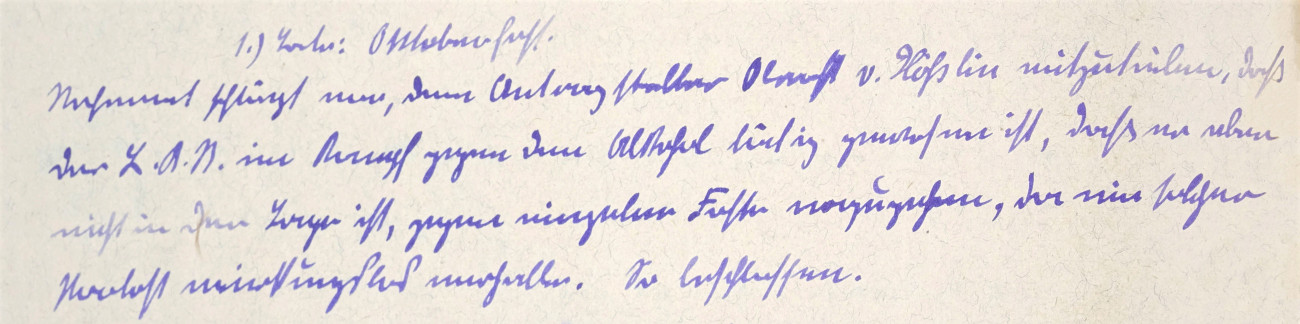 1.) Betr.: Oktoberfest.
schlägt vor, dem Antragsteller v. Hößlin mitzuteilen, daß
der L.K.R. im Kampf gegen den Alkohol tätig gewesen ist, daß er aber
nicht in der Lage ist, gegen einzelne Feste vorzugehen, da ein solcher
Protest wirkungslos verhalle. So beschlossen.